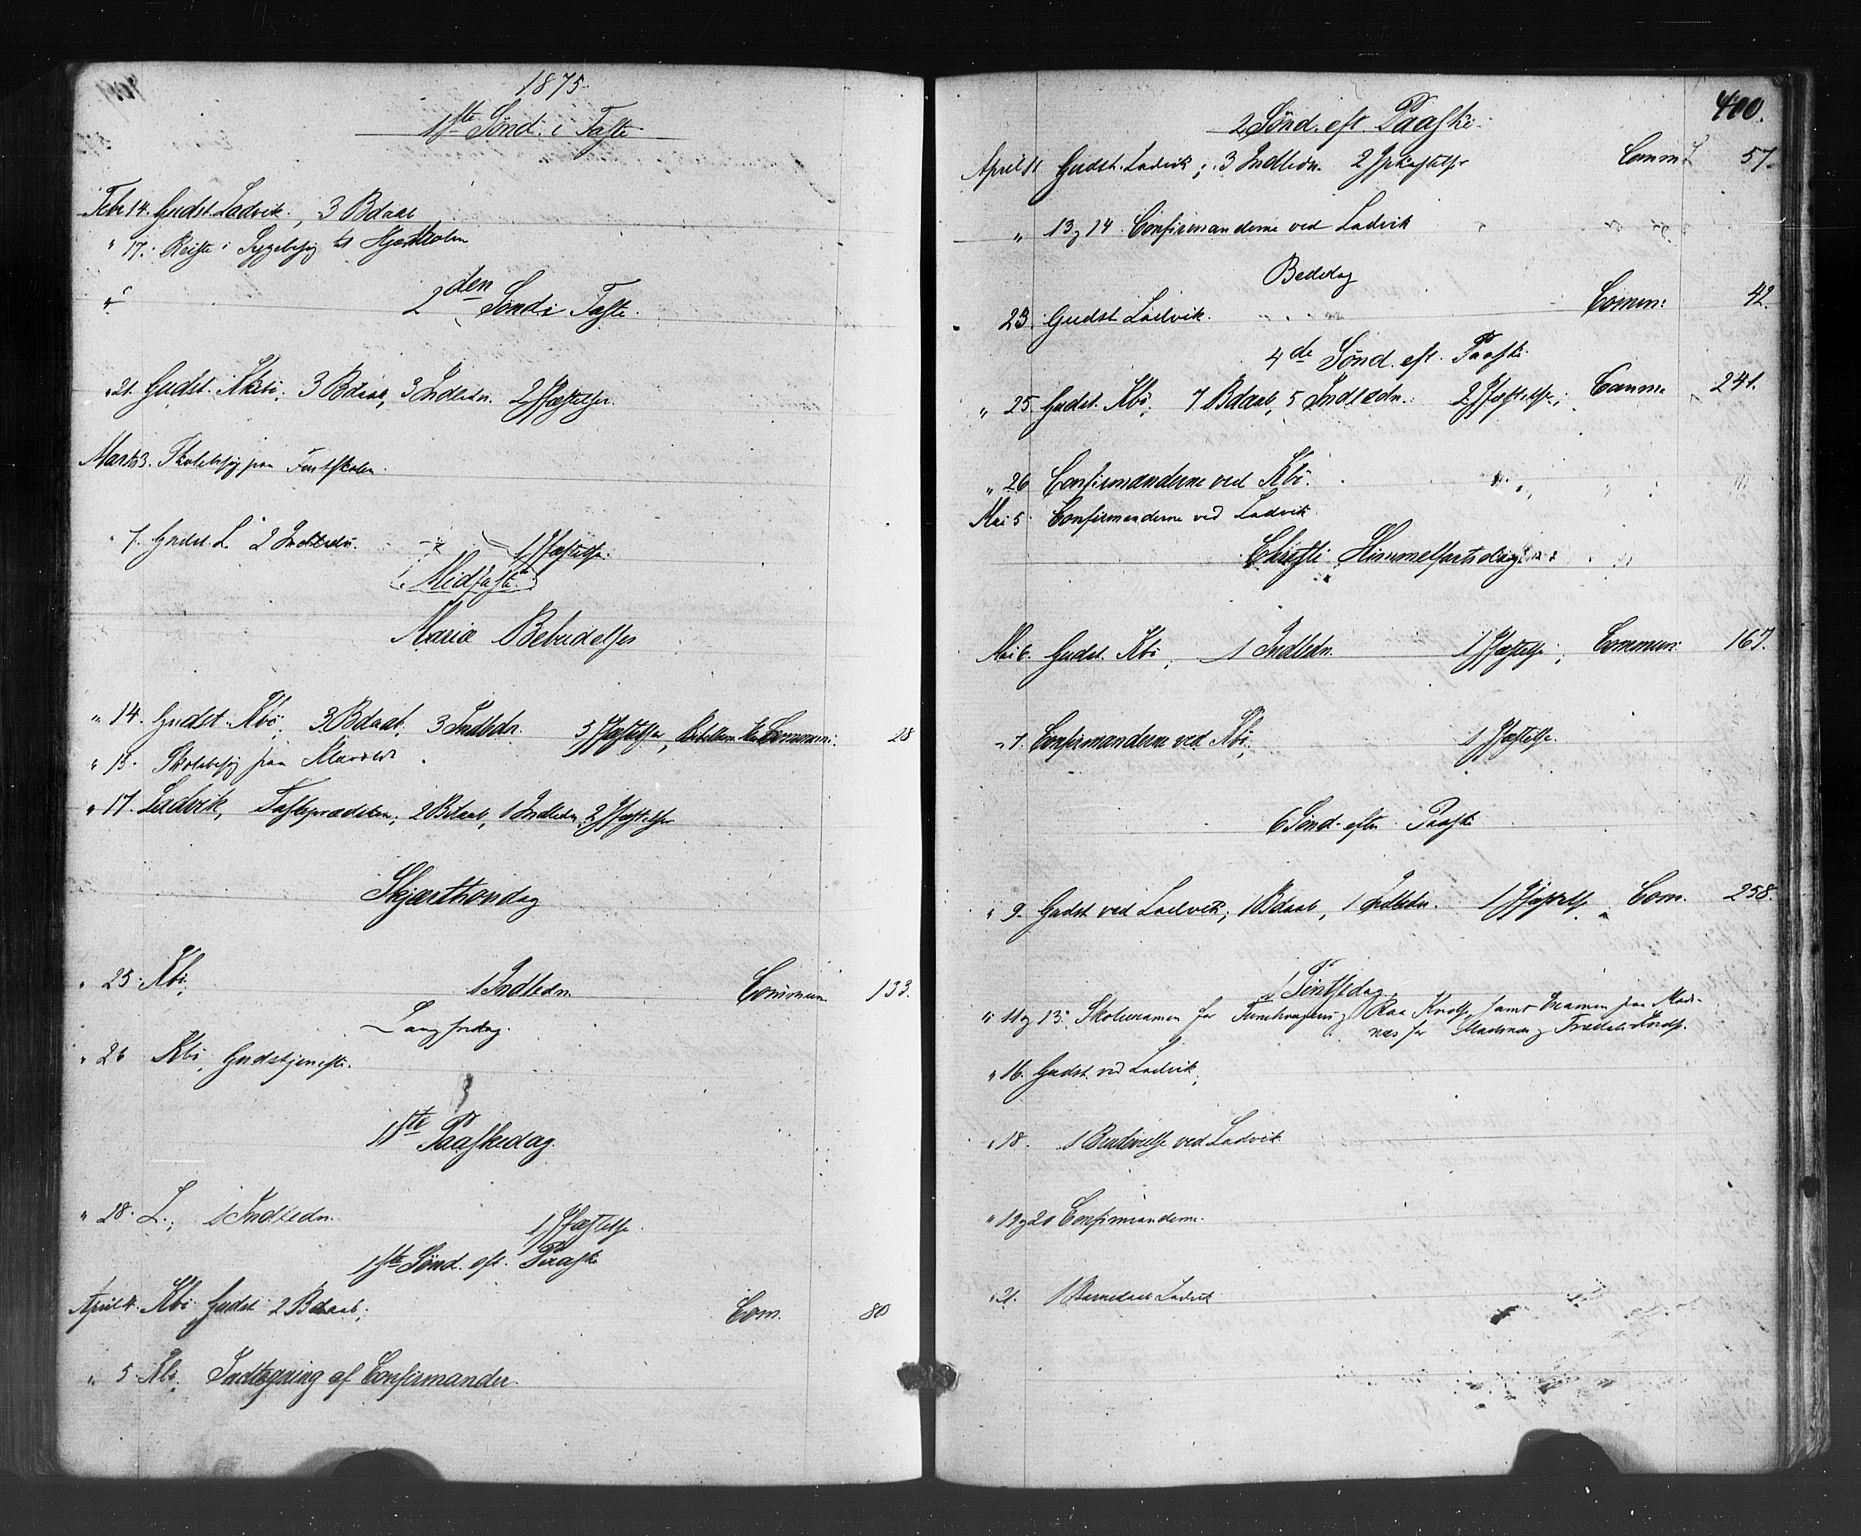 1875.
1ste Sønd. i Faste
Febr 14. Gudst. Ladvik. 3 Bdaab
" 17. Reiste i Sygebesøg til
2den Sønd i Faste.
" 21. Gudst. Kirkebø; 3 Bdaab, 3 Indledn. 2 Jfæstelser.
Marts 3. Skolebesøg paa Fastskolen.
" 7. Gudst. L. 2 Indledn. 1 Jfæstelse.
Midfaste.
Mariæ Bebudelses
" 14. Gudst. Kbø; 3 Bdaab, 3 Indledn. 3 Jfæstelser, Commun: 28
" 15. Skolebesøg paa
" 17. Ladvik, Fasteprædiken; 2 Bdaab, 1 Indledn, 2 Jfæstelser
Skjærthorsdag
" 25. Kbø; 1 Indledn. Commun 133.
Langfredag.
" 26 Kbø, Gudstjeneste.
1ste Paaskedag
" 28. L.; 1 Indledn. 1 Jfæstelse.
1ste Sønd. eft. Paaske
April 4. Kbø Gudst 2 Bdaab; Com. 80
" 5. Kbø; Indtegning af Confirmander.
400.
2 Sønd. eft Paaske.
April 11 Gudst. Ladvik; 3 Indledn. 2 Jfæstelser Comm 57.
" 13 og 14. Confirmanderne ved Ladvik
Bededag
23. Gudst Ladvik. Comm: 42.
4de Sønd. eft. Paaske.
" 25 Gudst. Kbø; 7 Bdaab, 5 Indledn. 2 Jfæstelse; Comm. 241.
" 26 Confirmanderne ved Kbø.
Mai 5. Confirmanderne ved Ladvik
Christi Himmelfartsdag
Mai 6. Gudst. Kbø; 1 Indledn. 1 Jfæstelse; Commun: 167.
" 7. Confirmanderne ved Kbø; 1 Jfæstelse.
6 Sønd. efter Paaske
" 9. Gudst ved Ladvik; 1 Bdaab, 1 Indledn. 1 Jfæstelse Com. 258.
1 Pintsedag
" 11 og 13. Skoleexamen for og Kreds, samt Examen paa Mad-
næs for og Kreds.
" 16. Gudst. ved Ladvik;
" 18. 1 ved Ladvik
" 19 og 20 Confirmanderne.
" 21. 1 Barnedaab Ladvik